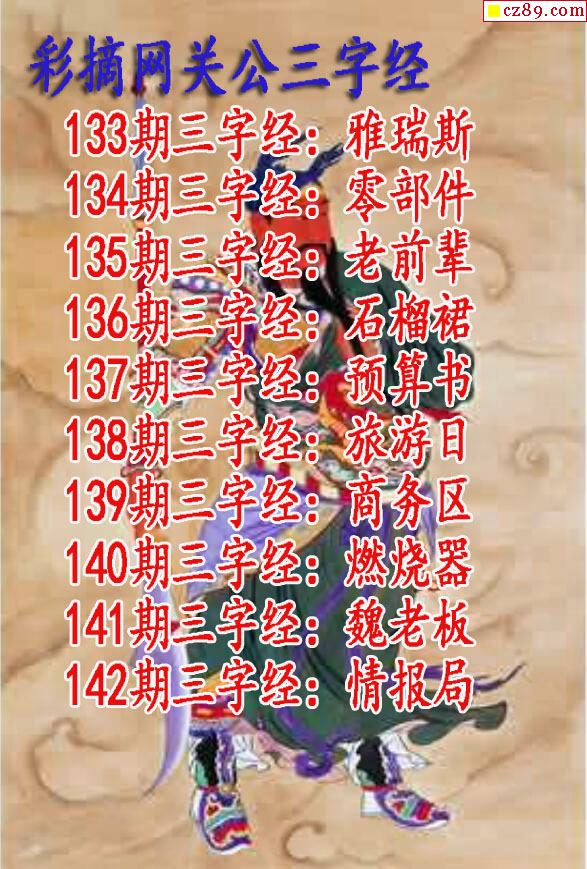 cz89.com
彩摘网关公三字经
133期三字经：雅瑞斯
134期三字经：零部件
135期三字经：老前辈
136期三字经：石榴裙
137期三字经：预算书
138期三字经：旅游日
139期三字经：商务区
140期三字经：燃烧器
141期三字经：魏老板
142期三字经：情报局